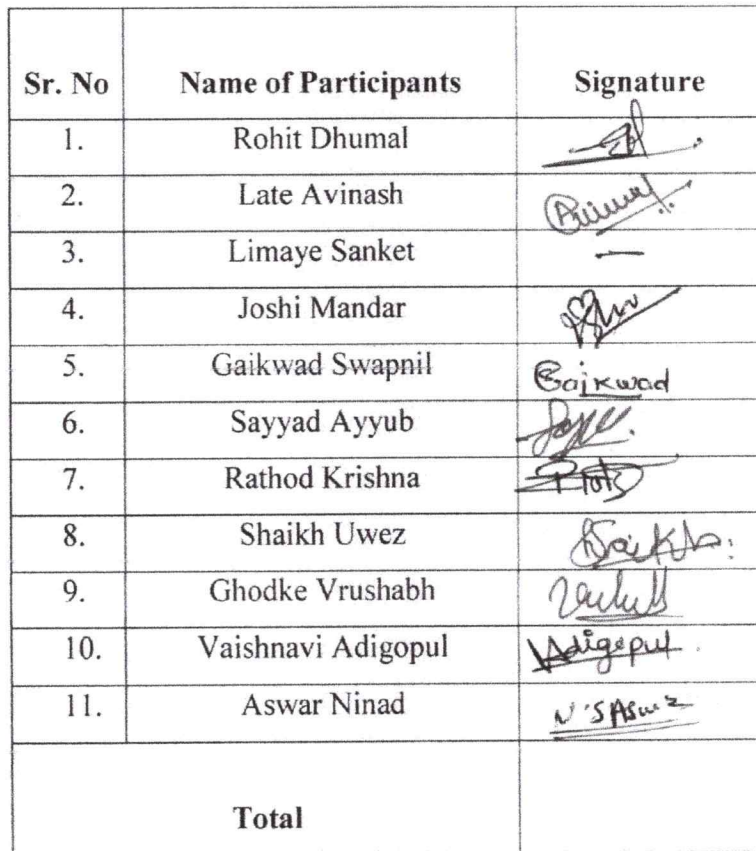 Sr. No Name of Participants Signature
1. Rohit Dhumal
2. Late Avinash
3. Limaye Sanket —
4. Joshi Mandar
5. Gaikwad Swapnil Gaikwad
6. Sayyad Ayyub
7. Rathod Krishna
8. Shaikh Uwez Shaikh
9. Ghodke Vrushabh
10. Vaishnavi Adigopul VAdigopul
11. Aswar Ninad
Total